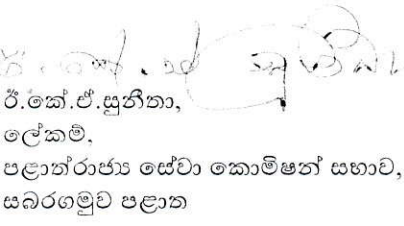 ඊ.කේ.ඒ.සුනීතා,
ලේකම්,
පළාත්රාජ්‍ය සේවා කොමිෂන් සභාව,
සබරගමුව පළාත